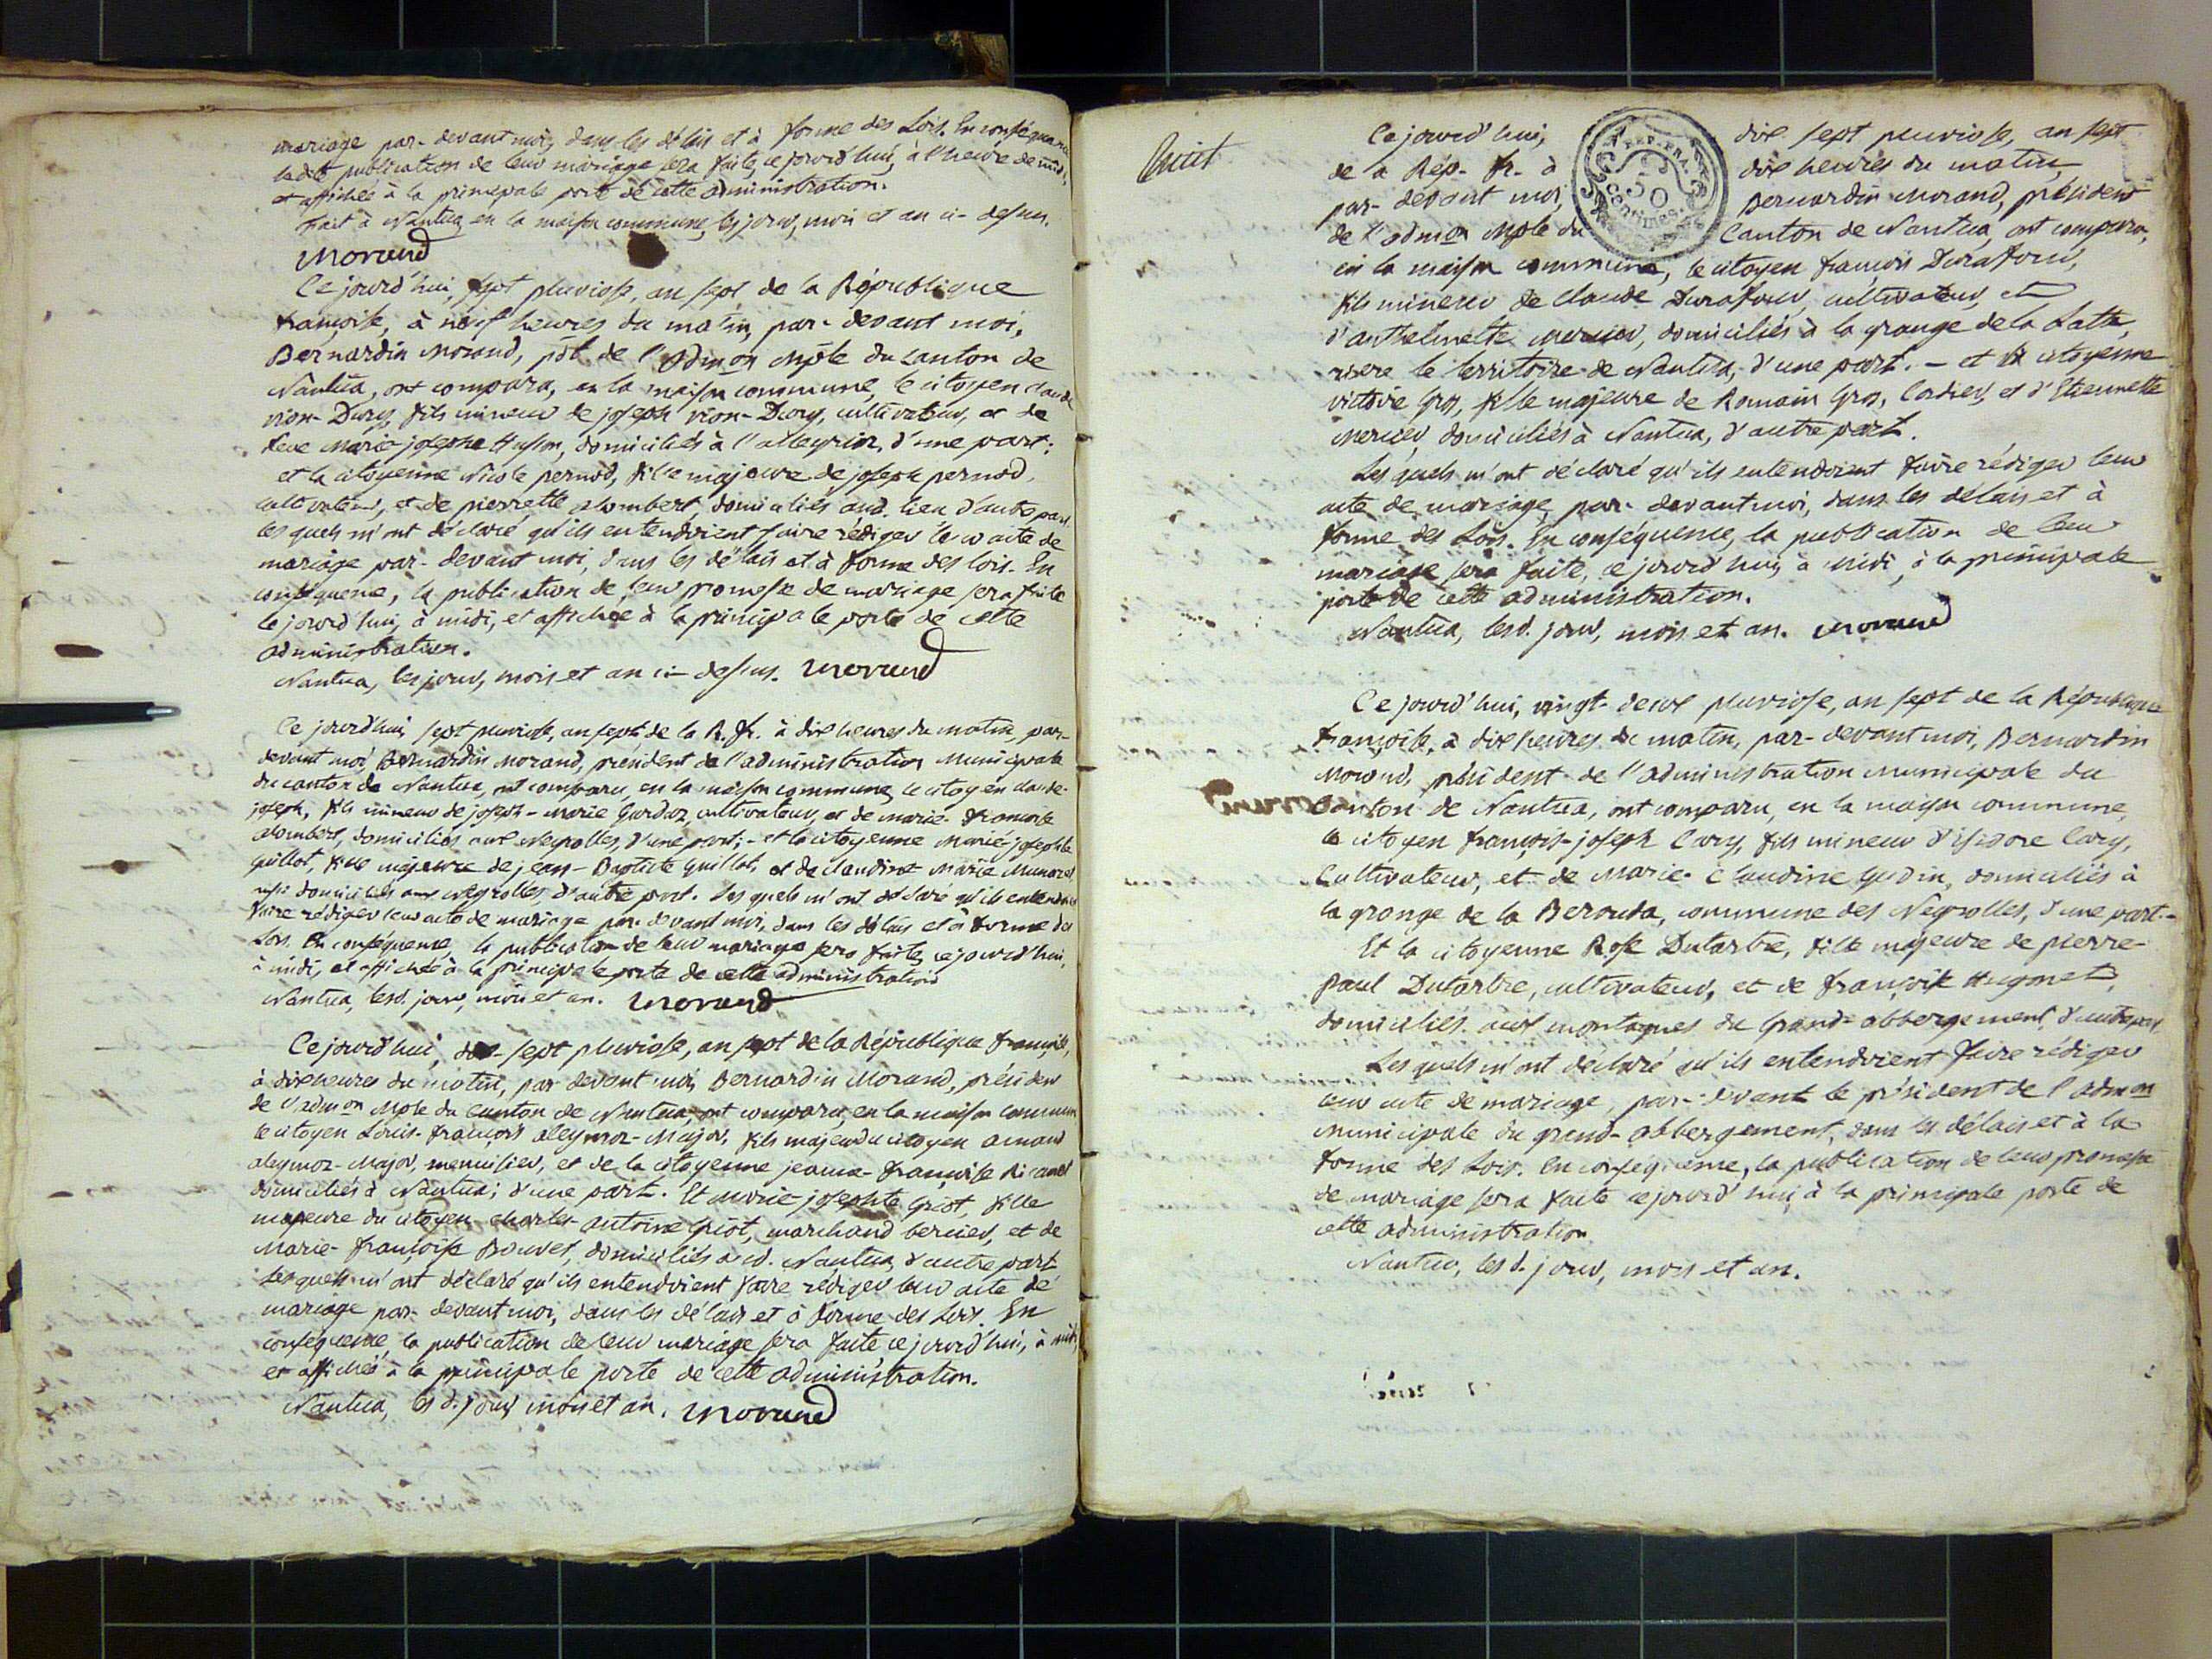 mariage par-devant moi, dans les délais et à forme des Lois. En conséquence
ladite publication de leur mariage sera faite, ce jourd'hui, à l'heure de midi,
et affichée à la principale porte de cette administration.
Fait à Nantua, en la maison commune, les jour, mois et an ci-dessus.
Morand
Ce jourd'hui, sept pluviose, an sept de la République
françoise, à neuf heures du matin, par-devant moi,
Bernardin Morand, pdt. de l'admon mple du canton de
Nantua, ont comparu, en la maison commune, le citoyen claude
vion-Dury, fils mineur de joseph vion-Dury, cultivateur, et de
feue Marie-josephe Husson, domiciliés à l'alleyriat, d'une part;
et la citoyenne Nicole pernod, fille majeure de joseph pernod,
cultivateur, et de pierrette alombert, domiciliés aud. lieu d'autre part.
les quels m'ont déclaré qu'ils entendoient faire rédiger leur acte de
mariage par-devant moi, dans les délais et à forme des lois. En
conséquence, la publication de leur promesse de mariage sera faite
ce jourd'hui, à midi, et affichée à la principale porte de cette
administration.
Nantua, les jour, mois et an ci-dessus. Morand
Ce jourd'hui, sept pluviose, an sept de la R. fr. à dix heures du matin, par-
devant moi, Bernardin Morand, président de l'administration Municipale
du canton de Nantua, ont comparu, en la maison commune, le citoyen claude-
joseph, fils mineur de joseph-Marie Gardaz, cultivateur, et de marie-françoise
alombert, domiciliés aux Neyrolles, d'une part; - et la citoyenne Marie-josephte
guillot, fille majeure de jean-Baptiste Guillot, et de claudine Marie
domiciliés aux neyrolles, d'autre part. Les quels m'ont déclaré qu'ils entendoient
faire rédiger leur acte de mariage par-devant moi, dans les délais et à forme des
Lois. En conséquence, la publication de leur mariage sera faite, ce jourd'hui,
à midi, et affichée à la principale porte de cette administration
Nantua, lesd. jour, mois et an. Morand
Ce jourd'hui, dix-sept pluviose, an sept de la République françoise,
à dix heures du matin, par devant moi, Bernardin Morand, président
de l'admon Mple du Canton de Nantua, ont comparu, en la maison commune
le citoyen Louis-françois aleymoz-Major, fils majeur du citoyen amand
aleymoz-Major, menuisier, et de la citoyenne jeanne-françoise
domiciliés à Nantua, d'une part. Et Marie-josephte Griot, fille
majeure du citoyen charles antoine Griot, marchand, et de
Marie-françoise Bouvet, domiciliés aud. Nantua, d'autre part
Lesquels m'ont déclaré qu'ils entendoient faire rédiger leur acte de
mariage par-devant moi, dans les délais et à forme des Lois. En
conséquence, la publication de leur mariage sera faite ce jourd'hui, à midi,
et affichée à la principale porte de cette administration.
Nantua, lesd. jour, mois et an. Morand
huit
REP. FRA.
50
centimes
Ce jourd'hui, dix sept pluviose, an sept
de la Rép. fr. à dix heures du matin,
par-devant moi, Bernardin Morand, président
de l'admon Mple du Canton de Nantua, ont comparu,
en la maison commune, le citoyen françois Durafour,
fils mineur de claude Durafour, cultivateur, et
d'anthelmette Mercier, domiciliés à la grange de la Latte,
riere le territoire de Nantua, d'une part. - et la citoyenne
victoire Gros, fille majeure de Romain Gros, Cordier, et d'Etiennette
Mercier, domiciliés à Nantua, d'autre part.
Les quels m'ont déclaré qu'ils entendoient faire rédiger leur
acte de mariage par-devant moi, dans les délais et à
forme des Lois. En conséquence, la publication de leur
mariage sera faite, ce jourd'hui, à midi, à la principale
porte de cette administration.
Nantua, lesd. jour, mois et an. Morand
Ce jourd'hui, vingt-deux pluviose, an sept de la République
françoise, à dix heures du matin, par-devant moi, Bernardin
Morand, président de l'administration municipale du
Canton de Nantua, ont comparu, en la maison commune,
le citoyen françois-joseph Cary, fils mineur d'isidore Cary,
Cultivateur, et de Marie-claudine Gudin, domiciliés à
la grange de la Berouda, commune des Neyrolles, d'une part.-
Et la citoyenne Rose Dutartre, fille majeure de pierre-
paul Dutartre, cultivateur, et de françoise Hugonet,
domiciliés aux montagnes du Grand-abbergement, d'autre part
Les quels m'ont déclaré qu'ils entendoient faire rédiger
leur acte de mariage, par-devant le président de l'admon
municipale du grand-abbergement, dans les délais et à la
forme des Lois. En conséquence, la publication de leur promesse
de mariage sera faite ce jourd'hui, à la principale porte de
cette administration
Nantua, lesd. jour, mois et an.